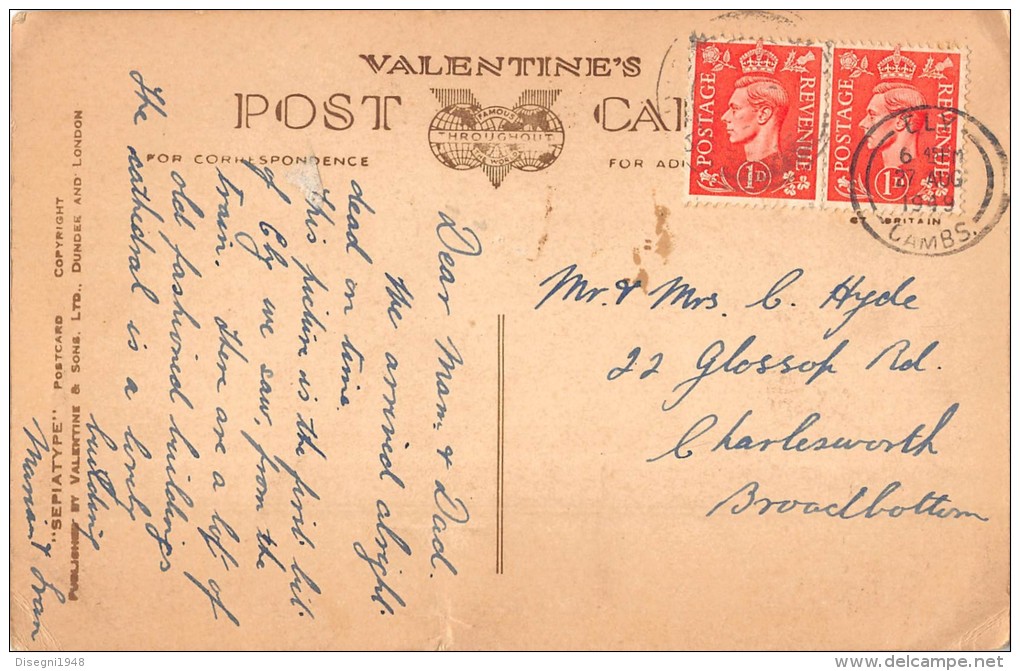 VALENTINE'S
POST CA
FAMOUS
THROUGHOUT
THE WORLD
FOR CORRESPONDENCE
FOR AD
POSTAGE REVENUE
1D
POSTAGE REVENUE
1D
ELY
6 45 PM
27 AUG
1949
CAMBS.
BRITAIN
Dear Mam & Dad.
We arrived alright.
dead on time.
This picture is the first bit
of Ely we saw, from the
train. There are a lot of
old fashioned buildings
The cathedral is a lovely
building
Mr. & Mrs. C. Hyde
22 Glossop Rd.
Charlesworth
Broadbottom
"SEPIATYPE" POSTCARD COPYRIGHT
PUBLISHED BY VALENTINE & SONS. LTD., DUNDEE AND LONDON
Disegni1948
delcampe.net